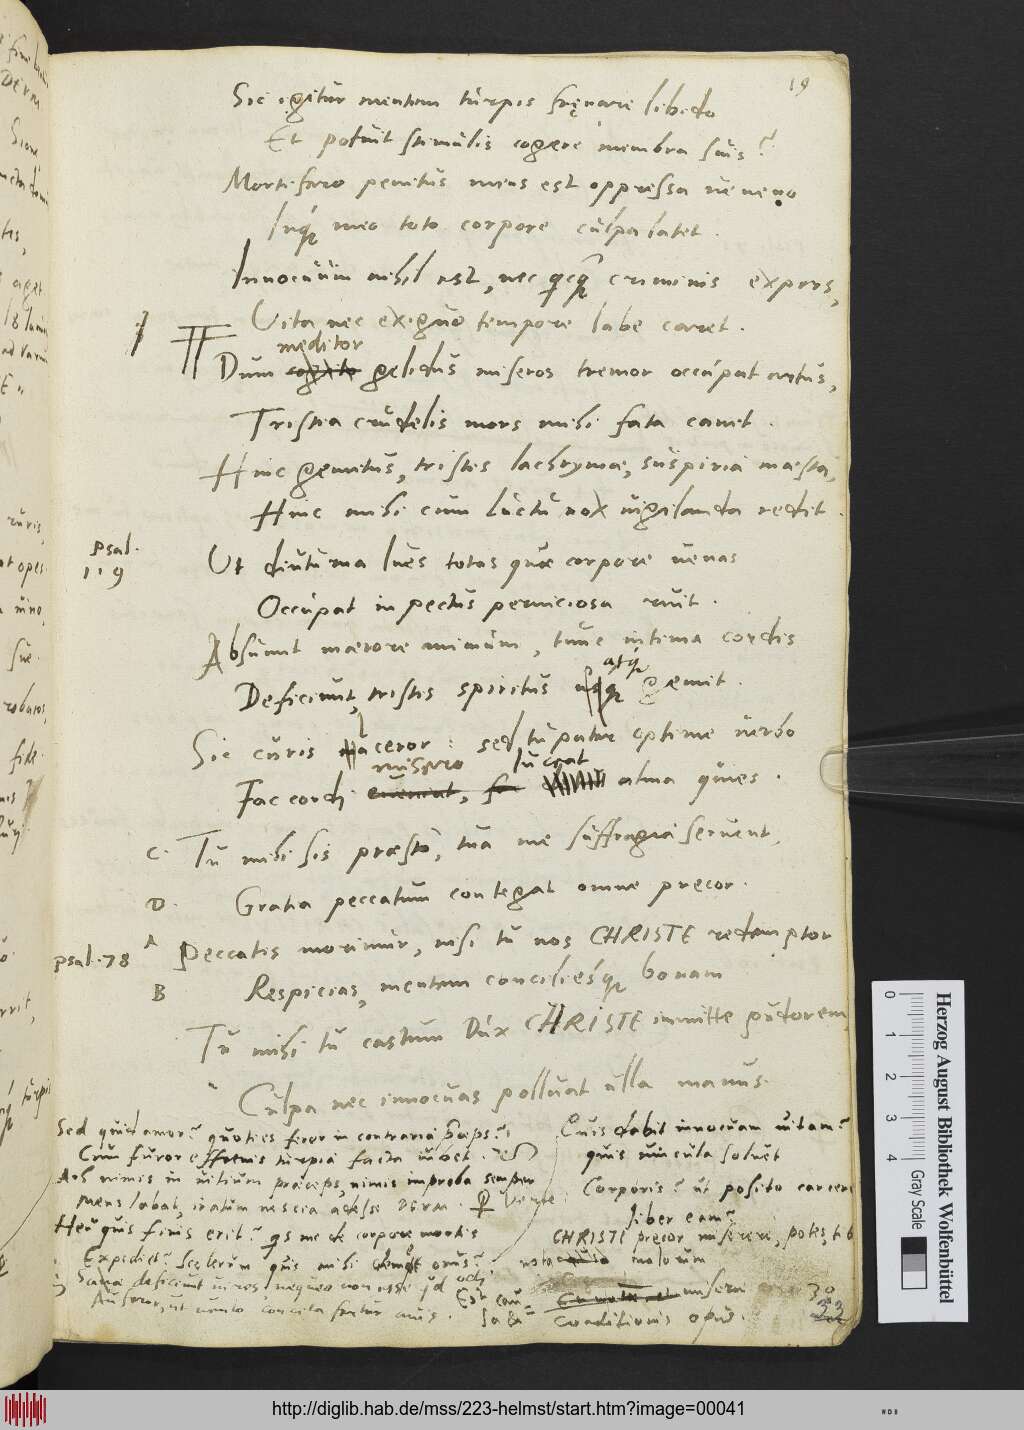 19
Sic igitur mentem turpis fręnare libido
Et potuit stimulis cogere membra suis?
Mortifero penitus mens est oppressa veneno
Inq́ meo toto corpore culpa latet.
Innocuum nihil est, nec criminis expers,
Vita nec exiguo tempore labe caret.
meditor
Dum cogito gelidus miseros tremor occupat artus,
Tristia crudelis mors mihi fata canit.
Hinc gemitus, tristes lachrymæ, suspiria mæsta,
Hinc mihi cum luctu nox vigilanda redit.
psal.
119
Ut diuturna lues totas quæ corpore venas
Occupat in pectus perniciosa ruit.
Absumit mærore animum, tunc intima cordis
atq́
Deficiunt, tristis spiritus gemit.
Sic curis maceror: sed tu pater optime verbo
misero luceat
Fac cordi alma quies.
C. Tu mihi sis præsto, tua me suffragia servent,
D. Gratia peccatum contegat omne precor.
psal. 78
A Peccatis morimur, nisi tu nos CHRISTE redemptor
B Respicias, mentem conciliesq́ bonam
Tu mihi tu castum Dux CHRISTE immitte pudorem
Culpa nec innocuas polluat ulla manus.
Sed quid amor? quoties feror in contraria præceps?
Cum furor effrenis turpia facta iubet.
Ah nimis in vitium præceps, nimis improba semper
Mens labat, iratum nescia adesse Deum.
Heu quis finis erit? quis me de corpore mortis
Expediet? scelerum quis mihi demet onus?
Auferor, ut vento concita fertur avis.
Quis dabit innocuam vitam?
quis vincula solvet
Corporis? ut posito carcere
liber eam?
CHRISTE precor miserere, potes, tibi
nota malorum
misera
Conditionis opus.
30
33
Herzog August Bibliothek Wolfenbüttel
Gray Scale
0 1 2 3 4
http://diglib.hab.de/mss/223-helmst/start.htm?image=00041